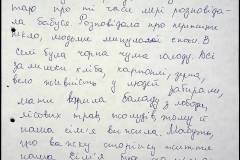 про ті часи мені розповіда-
ла бабуся. Розповідала про
пекло, людоми минулого
селі була чорна чума голоду. Всі
залишки хліба, картоплі, зерна,
всю живність у людей забирали,
мати варила баланду з лободи,
лісових трав, жолудів, тому й
наша сім'я вижила. Мабуть,
про важку сторінку життя
наша сім'я